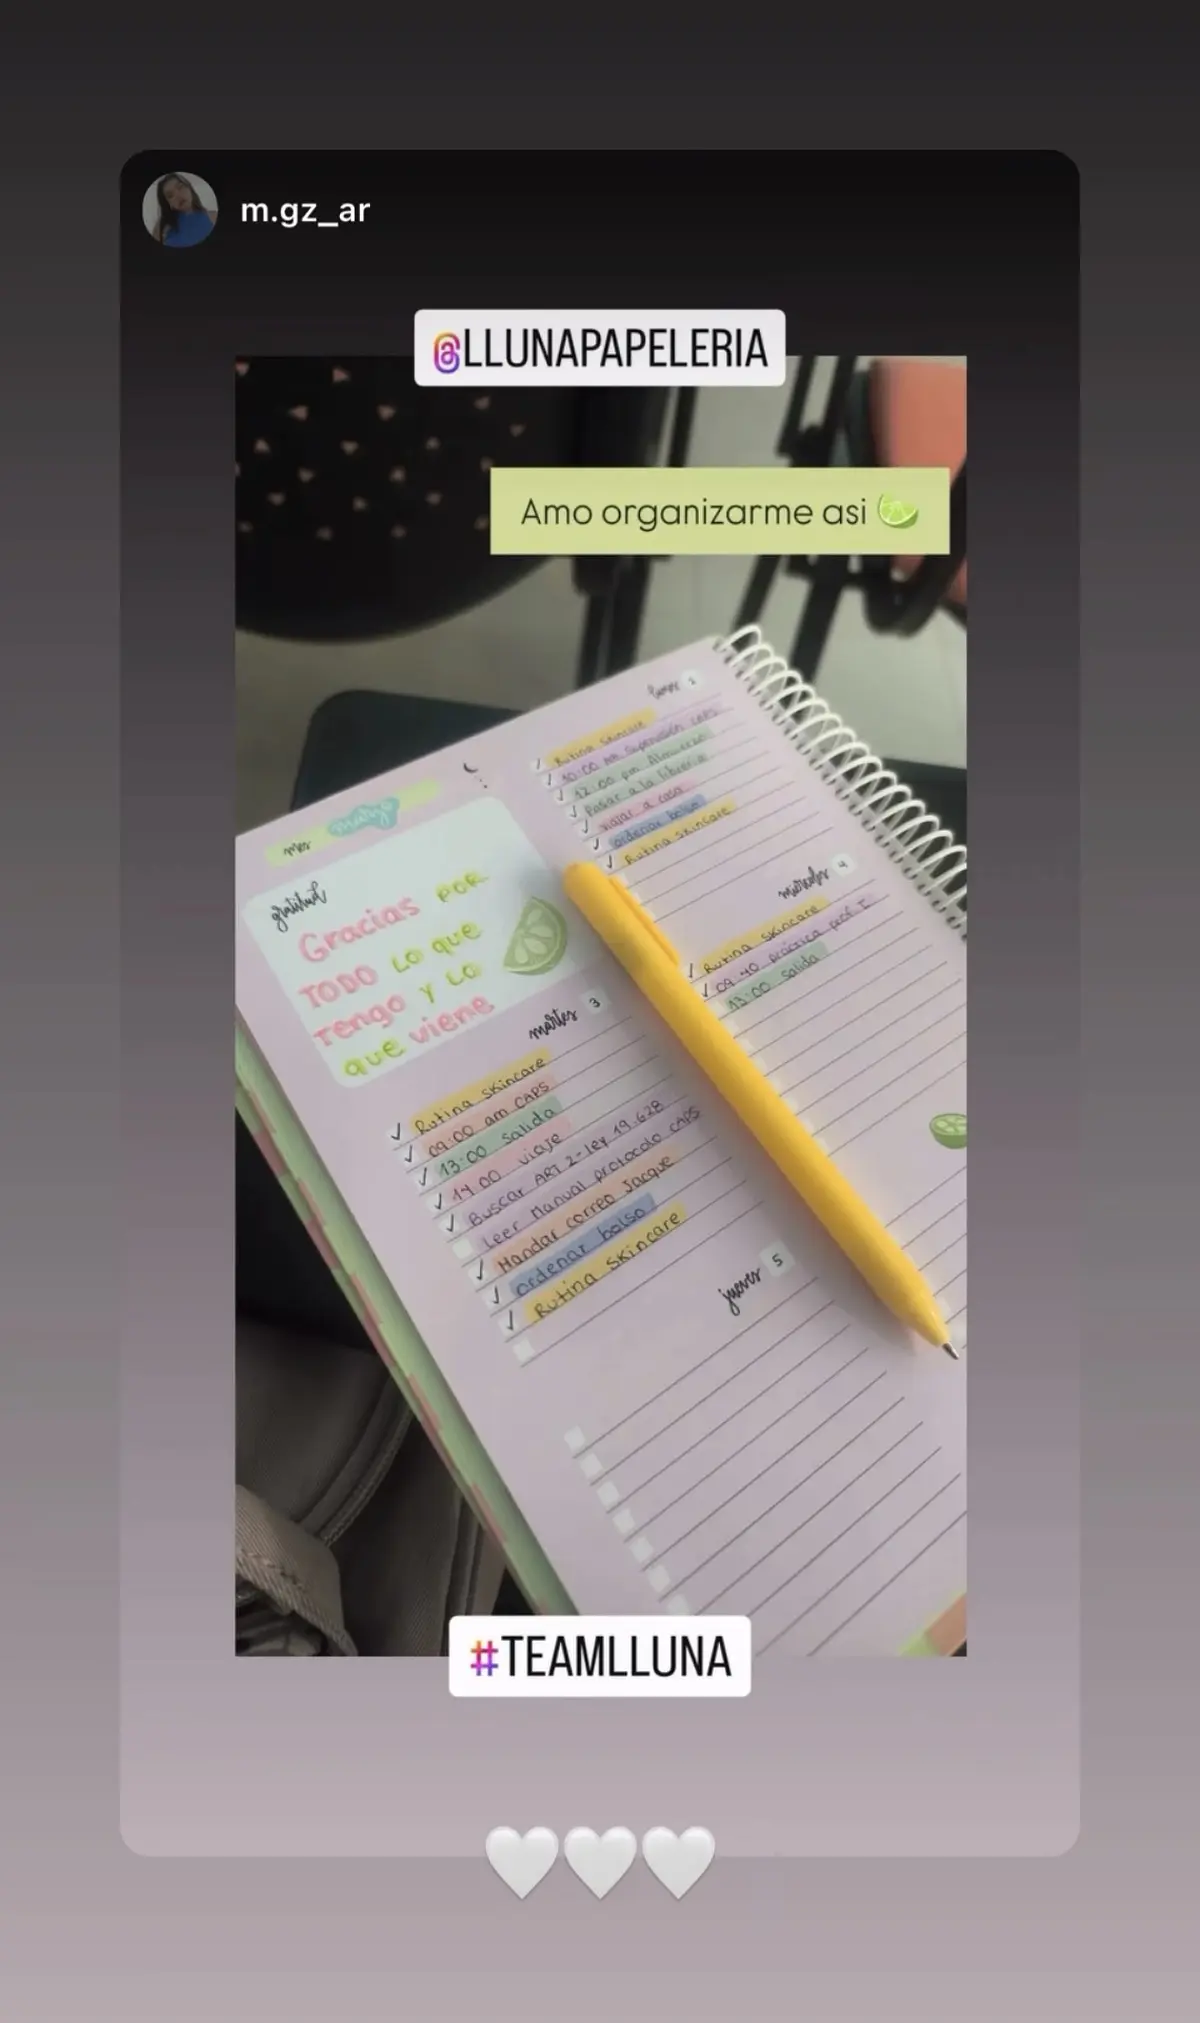 m.gz_ar
@LLUNAPAPELERIA
Amo organizarme asi
lunes 2
Rutina skincare
10:00 am supervisión CAPS
12:00 pm Almuerzo
Pasar a la librería
viajar a casa
ordenar bolso
Rutina skincare
mes marzo
gratitud
Gracias POR
TODO LO que
Tengo Y LO
que viene
martes 3
Rutina skincare
09:00 am CAPS
13:00 salida
14:00 viaje
Buscar ART 2-ley 19.628
Leer Manual protocolo CAPS
Mandar correo Jacque
ordenar bolso
Rutina skincare
miércoles 4
Rutina skincare
09:40 práctica prof I
13:00 salida
jueves 5
#TEAMLLUNA